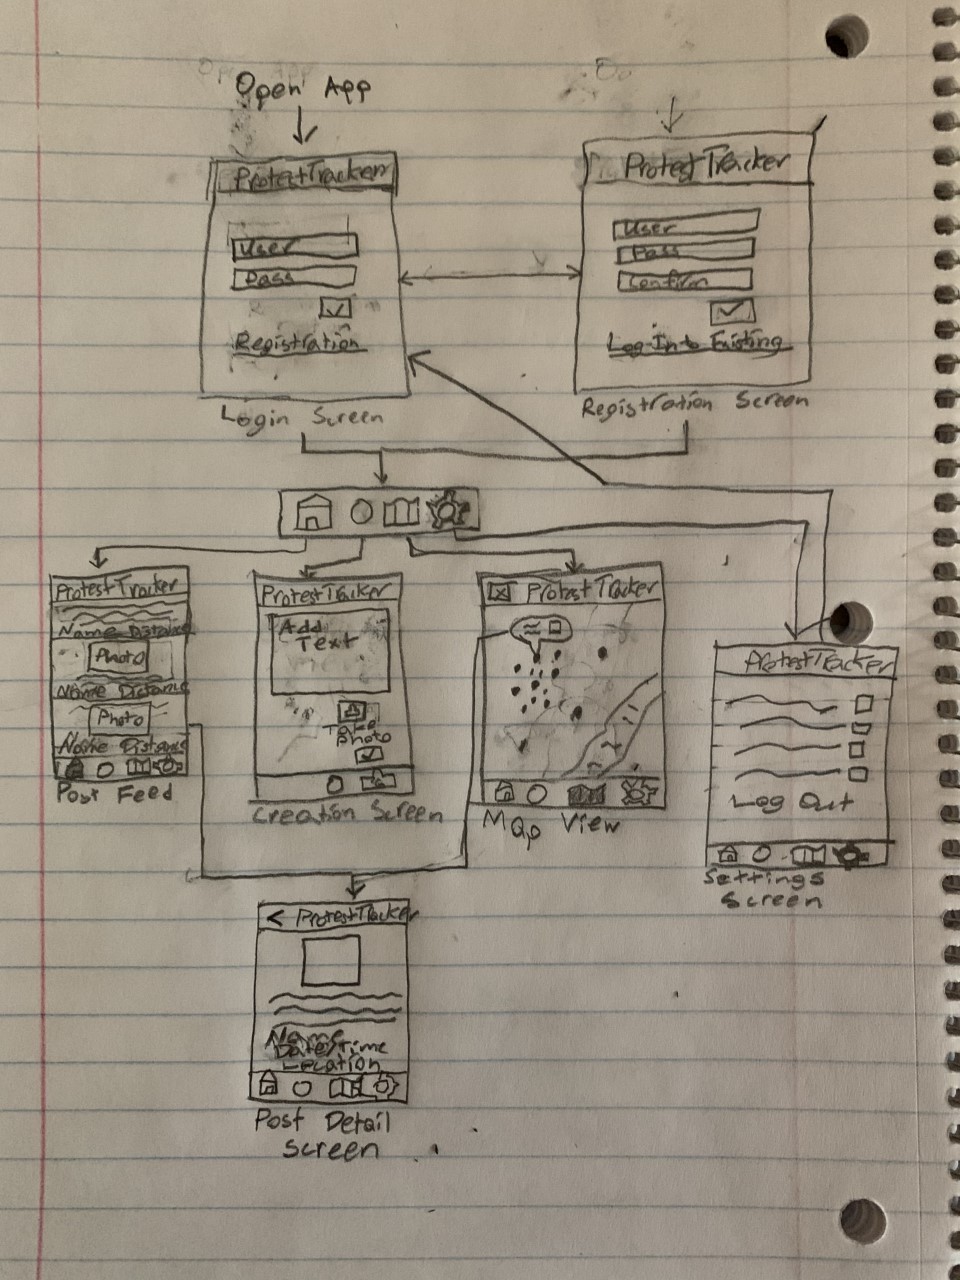 Open App
ProtestTracker
User
Pass
Registration
Login Screen
ProtestTracker
User
Pass
Confirm
Log-Into Existing
Registration Screen
ProtestTracker
Name Distance
Photo
Name Distance
Photo
Name Distance
Post Feed
ProtestTracker
Add
Text
Take
Photo
Creation Screen
ProtestTracker
Map View
ProtestTracker
Log Out
Settings
Screen
< ProtestTracker
Date/Time
Location
Post Detail
Screen